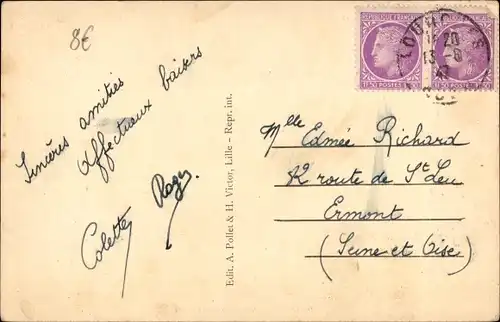 8€
Sincères amitiés
affectueux baisers
Colette Roger.
Edit. A. Pollet & H. Victor, Lille - Repr. int.
POSTES
POSTES
13-8
47
Mlle Edmée Richard
12 route de St Leu
Ermont
(Seine et Oise)